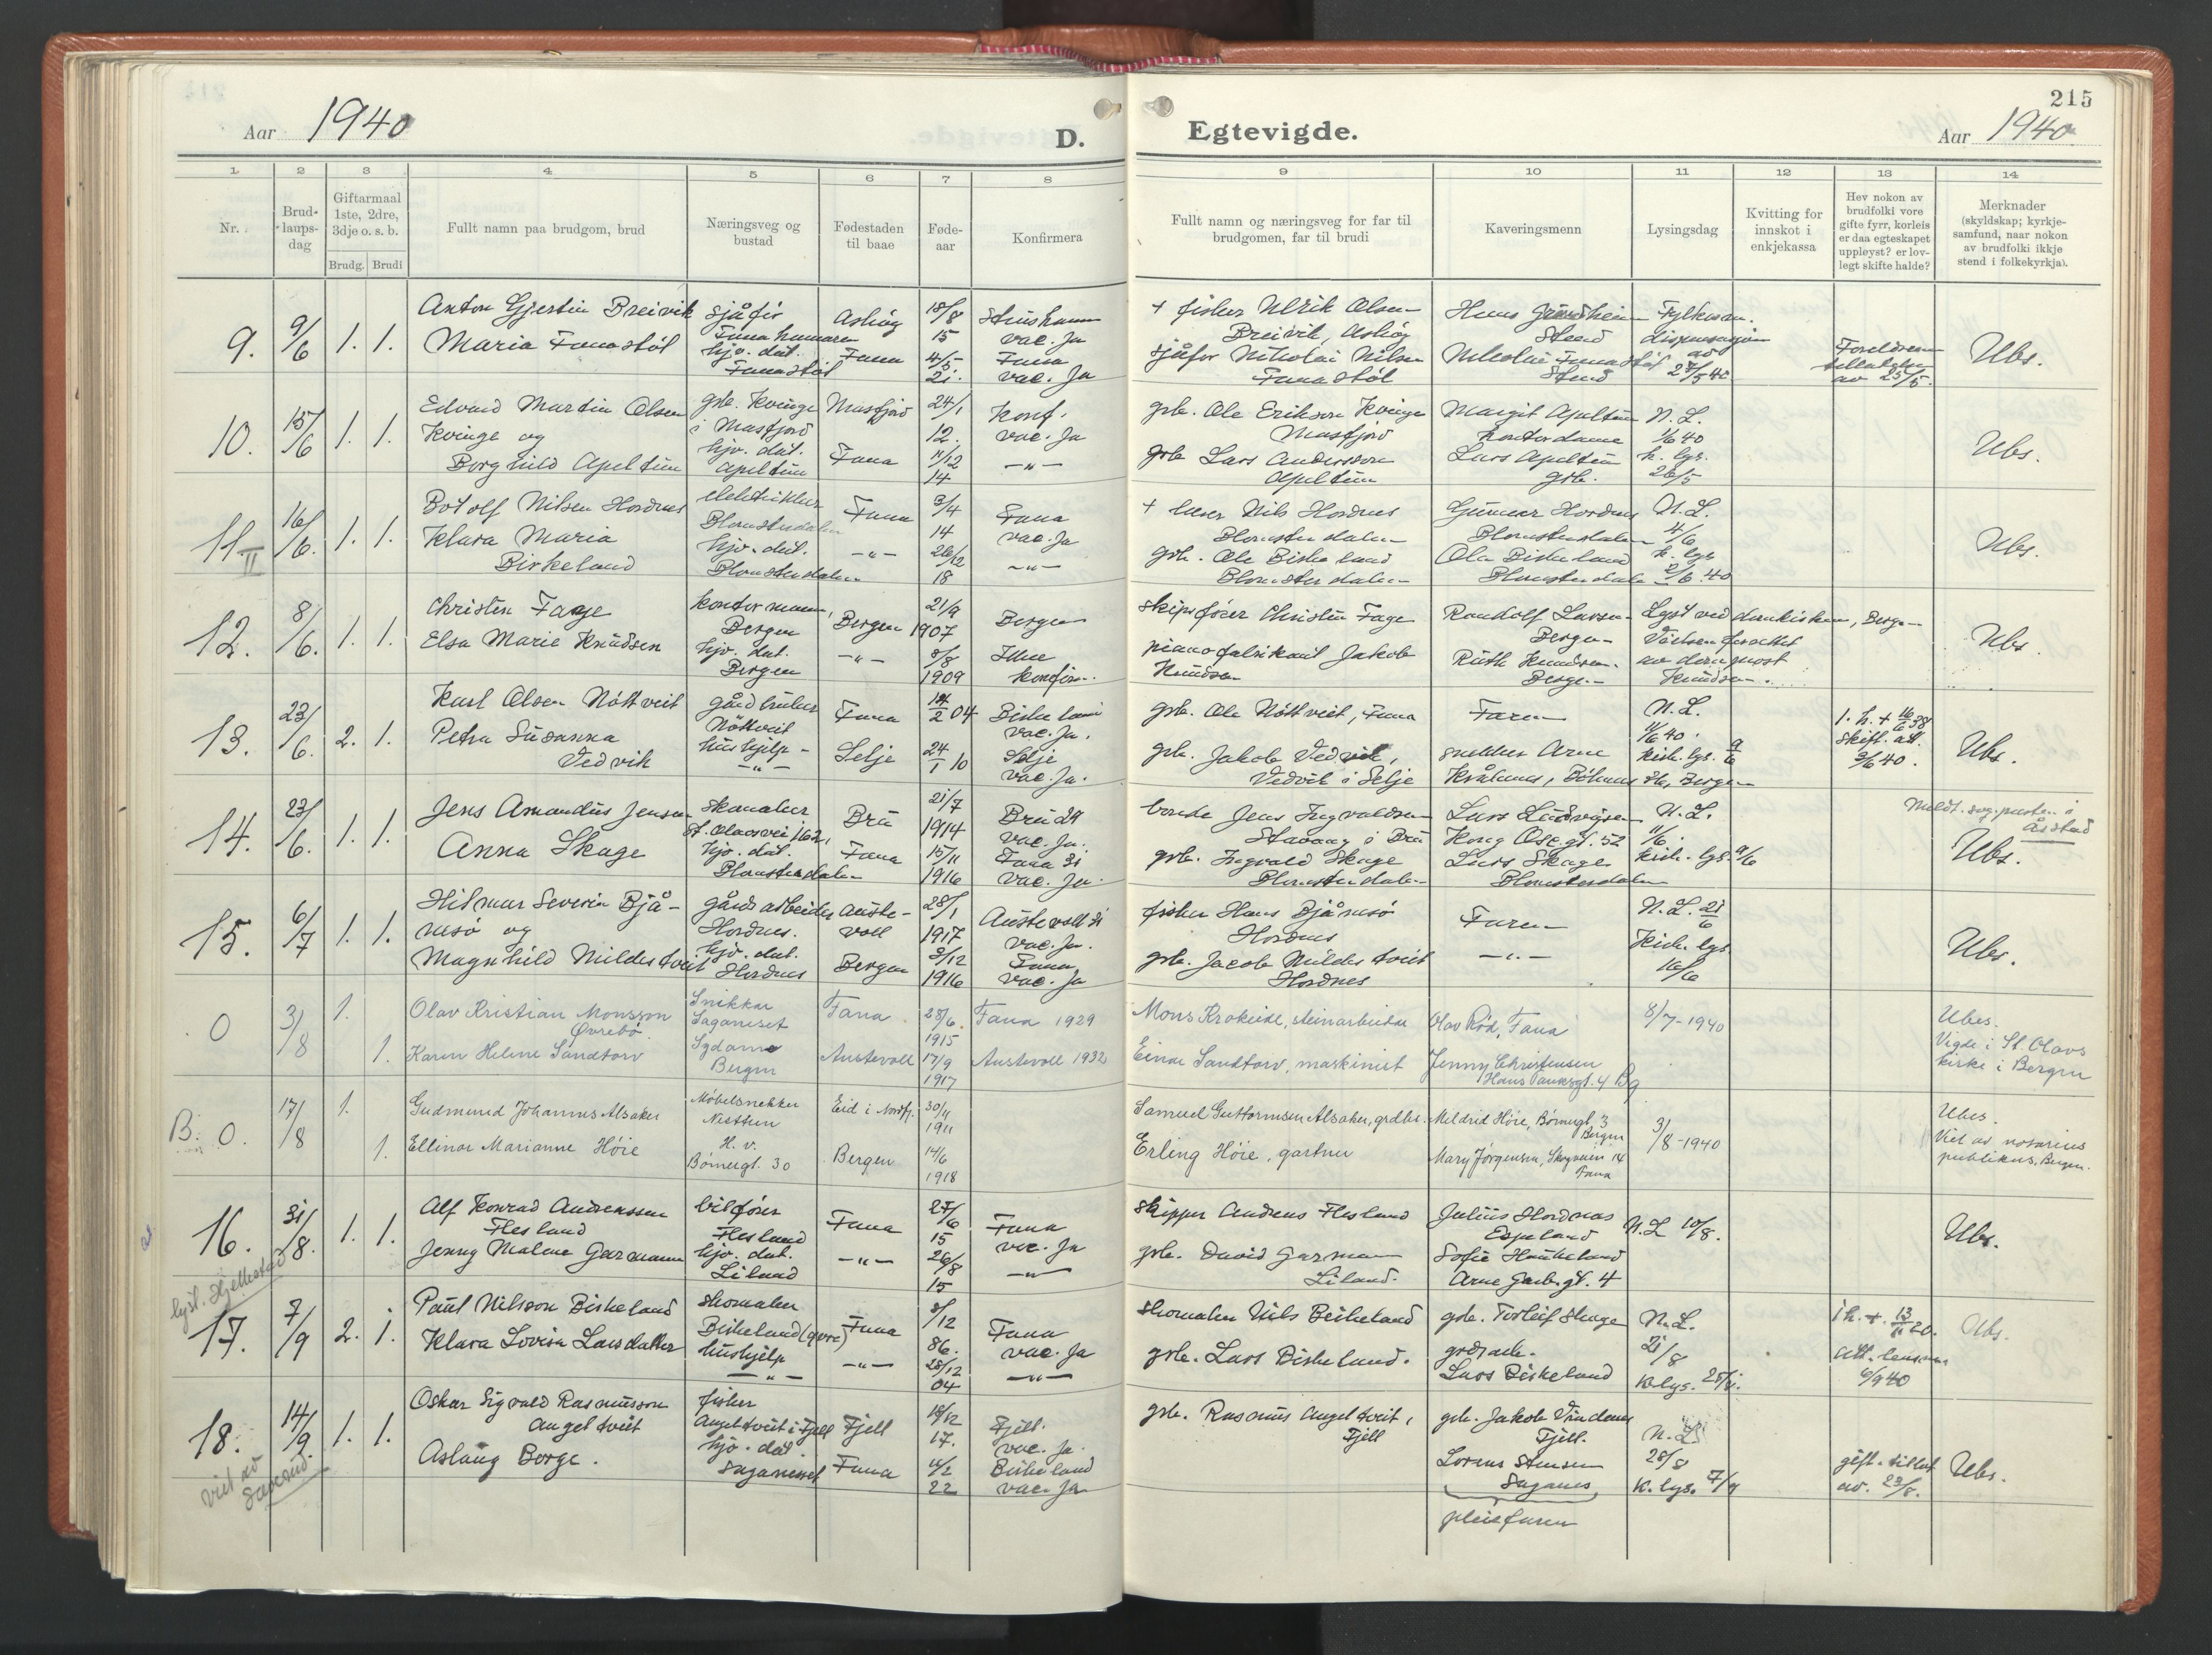 Aar 1940
D.
Egtevigde.
215
Aar 1940
1 2 3 4 5 6 7 8 9 10 11 12 13 14
Nr.
Brud-
laups-
dag
Giftarmaal
1ste, 2dre,
3dje o. s. b.
Brudg. Brudi
Fullt namn paa brudgom, brud
Næringsveg og
bustad
Fødestaden
til baae
Føde-
aar
Konfirmera
Fullt namn og næringsveg for far til
brudgomen, far til brudi
Kaveringsmenn
Lysingsdag
Kvitting for
innskot i
enkjekassa
Hev nokon av
brudfolki vore
gifte fyrr, korleis
er daa egteskapet
uppløyst? er lov-
legt skifte halde?
Merknader
(skyldskap; kyrkje-
samfund, naar nokon
av brudfolki ikkje
stend i folkekyrkja).
9. 9/6 1. 1.
Anton Gjertin Breivik
Maria Fanastøl
sjåfør
hjv. dat.
Fanastøl
Askøy
Fana
18/8
15
4/5
21.
vac. Ja
Fana
vac. Ja
+ fisker Ulrik Olsen
Breivik, Askøy
sjåfør Nikolai Nilsen
Fanastøl
Stend
Nikolai Fanastøl
Stend
dispensasjon
av
27/5 40
av 25/5.
Ubs.
10. 15/6 1. 1.
Edvard Martin Olsen
Kvinge og
Borghild Apeltun
grb. Kvinge
i Masfjord
hjv. dat.
Apeltun
Masfjord
Fana
24/1
12.
11/12
14
Konf.
vac. Ja
—"—
grb. Ole Erikson Kvinge
Masfjord
grb Lars Andersson
Apeltun
Margit Apeltun
Kontordame
Lars Apeltun
grb.
N. L.
1/6 40
k. lys.
26/5
Ubs.
11. II 16/6. 1. 1.
Botolf Nilsen Hordnes
Klara Maria
Birkeland
elektriker
Blomsterdalen
hjv. dat.
Blomsterdalen
Fana
—"—
3/4
14
26/12
18
Fana
vac. Ja
—"—
Nils Hordnes
Blomsterdalen
grb. Ole Birkeland
Blomsterdalen
Gunnar Hordnes
Blomsterdalen
Ola Birkeland
Blomsterdalen
N. L.
4/6
k. lys.
2/6. 40
Ubs.
12. 8/6. 1. 1.
Christen Fage
Elsa Marie Knudsen
kontormann,
Bergen
hjv. dat.
Bergen
Bergen
—"—
21/9
1907
8/8
1909
Bergen
konfir.
skipsfører Christen Fage
pianofabrikant Jakob
Knudsen
Randolf Larsen
Bergen
Ruth Knudsen.
Bergen
Lyst ved domkirken, Bergen
Vielsen foretatt
av domprost
Knudsen.
Ubs.
13. 23/6. 2. 1.
Karl Olsen Nöttveit
Petra Susanna
Vedvik
gårdbruker
Nöttveit
hushjelp
—"—
Fana
Selje
14/2 04
24/1 10
Birkeland
vac. Ja.
Selje
vac. Ja.
grb. Ole Nöttveit, Fana
grb. Jakob Vedvik,
Vedvik i Selje
Faren
snekker Arne
N. L.
11/6 40.
kirk. lys. 9/6
Bergen
1. h. + 16/6 38
skift. att.
3/6 40.
Ubs.
14. 23/6. 1. 1.
Jens Amandus Jensen
Anna Skage
skomaker
St. Olavsvei 162,
hjv. dat.
Blomsterdalen
Bru
Fana
21/7
1914
15/11
1916
Bru 29
vac. Ja.
Fana 31
vac. Ja.
bonde Jens Ingvaldsen
Stavang i Bru
grb. Ingvald Skage
Blomsterdalen
Lars Ludvigsen
Kong Osc. gt. 52
Lars Skage
Blomsterdalen
N. L.
11/6.
kirk. lys. 9/6
meldt. sog. presten i
Ubs.
15. 6/7 1. 1.
Hilmar Severin Bjå-
nesø og
Magnhild Mildestveit
gårdsarbeider
Hordnes.
hjv. dat.
Hordnes
Auste-
voll
Bergen
28/1
1917
3/12
1916
Austevoll 31
vac. Ja.
Fana
vac. Ja
fisker Hans Bjånesø
Hordnes
grb. Jacob Mildestveit
Hordnes
Faren
—"—
N. L. 21/6
Kirk. lys
16/6
Ubs.
0 3/8 1. 1.
Olav Kristian Monsson
Øvrebø
Karen Helene Sandtorv
Snikkar
Saganeset
Sydame
Bergen
Fana
Austevoll
25/6.
1915
17/9
1917
Fana 1929
Austevoll 1932
Mons Krokeide, steinarbeider
Einar Sandtorv, maskinist
Olav Rød, Fana
Jenny Christensen
Hans Tanksgt. 4 Bg
8/7-1940
Ubes.
Vigde i St. Olavs
kirke i Bergen
B. 0. 17/8 1. 1.
Gudmund Johannes Alsaker
Ellinor Marianne Höie
Møbelsnekker
Nesttun
H. v.
Bömergt. 30
Eid i Nordfj.
Bergen
30/4
1911
14/6
1918
Samuel Guttormsen Alsaker, grdbr.
Erling Höie, gartner
Meldrid Höie, Bömergt. 3
Bergen
Mary Jørgensen, Skogveien 14
Fana
3/8-1940
Ubes.
Viet av notarius
publikus, Bergen.
16. 31/8. 1. 1.
Alf Konrad Andreassen
Flesland
Jenny Malene Garmann
bilfører
Flesland
hjv. dat.
Liland
Fana
—"—
27/6
15
26/8
15
Fana
vac. Ja
—"—
skipper Andreas Flesland
grb. David Garmann
Liland.
Julius Hordnes
Espeland
Sofie Haukeland
Arne Garb. gt. 4
N. L 10/8.
Ubs.
lyst. Hjellestad
17. 7/9 2. 1.
Paul Nilsson Birkeland
Klara Lovisa Larsdatter
skomaker
Birkeland (øvre)
hushjelp
—"—
Fana
—"—
8/12
86.
28/12
04
Fana
vac. Ja
—"—
skomaker Nils Birkeland
grb. Lars Birkeland.
grb. Torleif Skage
Lars Birkeland
N. L.
21/8
K. lys. 25/8.
1 h. +. 13/11 20.
att. lensmann
6/9 40
Ubs.
18. 14/9. 1. 1.
viet av
Oskar Sigvald Rasmusson
Angeltveit
Aslaug Borge.
fisker
Angeltveit i Fjell
hjv. dat.
Saganeset
Fjell
Fana
18/12
17.
4/2
22
Fjell.
vac. Ja.
Birkeland
vac. Ja
grb. Rasmus Angeltveit,
Fjell
grb. Jakob Vindenes
Fjell.
Lorens Stensen
Saganes
pleiefaren
N. L
28/8
K. lys. 7/9
gift. tillat
av. 23/8.
Ubs.